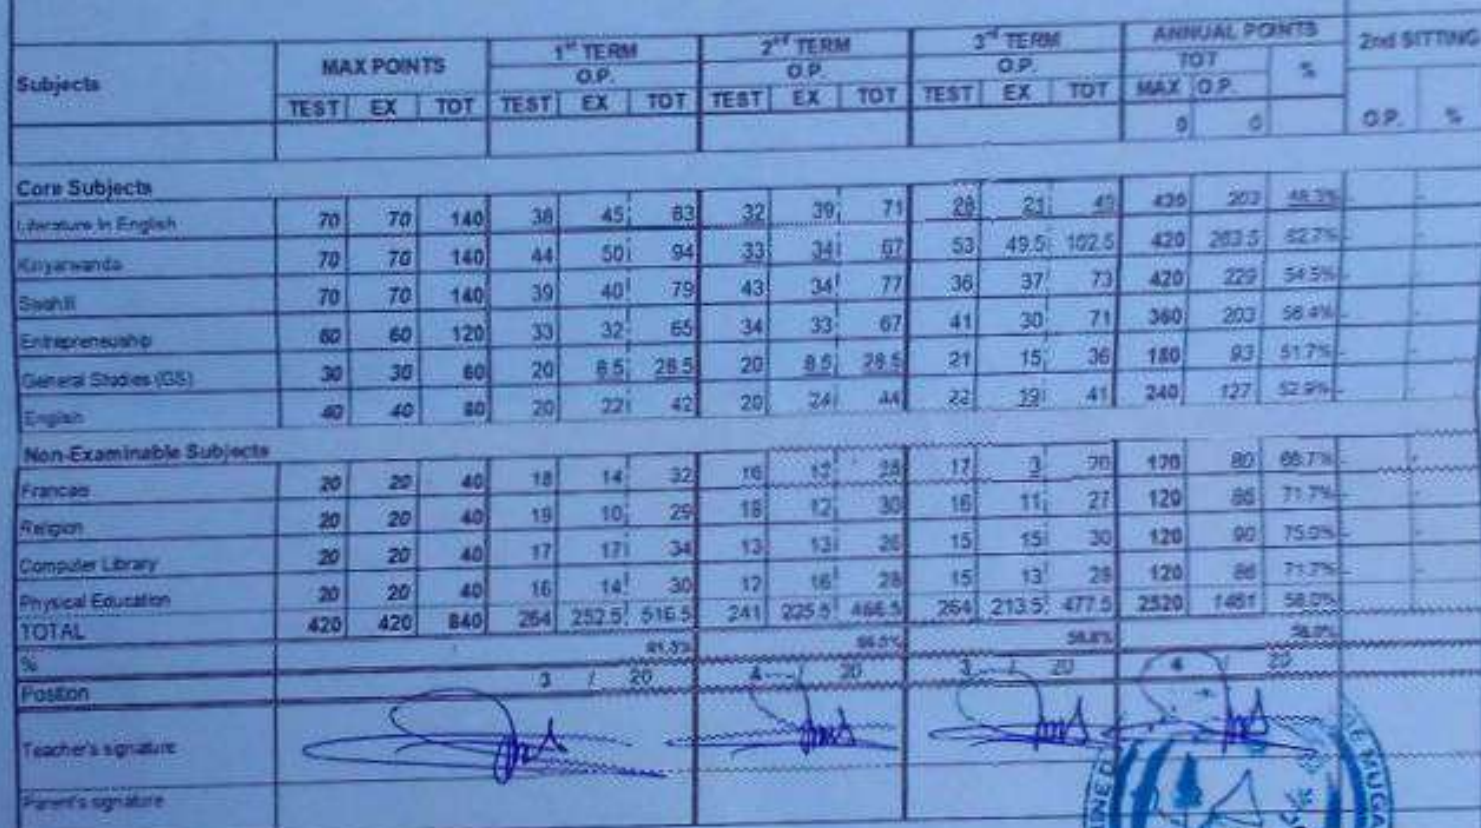 Subjects MAX POINTS 1st TERM 2nd TERM 3rd TERM ANNUAL POINTS 2nd SITTING
O.P. O.P. O.P. TOT %
TEST EX TOT TEST EX TOT TEST EX TOT TEST EX TOT MAX O.P. O.P. %
0 0
Core Subjects
Literature in English 70 70 140 38 45 83 32 39 71 28 21 49 420 203 48.3% - -
Kinyarwanda 70 70 140 44 50 94 33 34 67 53 49.5 102.5 420 263.5 62.7% - -
Swahili 70 70 140 39 40 79 43 34 77 36 37 73 420 229 54.5% - -
Entrepreneuship 60 60 120 33 32 65 34 33 67 41 30 71 360 203 56.4% - -
General Studies (GS) 30 30 60 20 8.5 28.5 20 8.5 28.5 21 15 36 180 93 51.7% - -
English 40 40 80 20 22 42 20 24 44 22 19 41 240 127 52.9% - -
Non-Examinable Subjects
Francais 20 20 40 18 14 32 16 12 28 17 3 20 120 80 66.7% - -
Religion 20 20 40 19 10 29 18 12 30 16 11 27 120 86 71.7% - -
Computer Library 20 20 40 17 17 34 13 13 26 15 15 30 120 90 75.0% - -
Physical Education 20 20 40 16 14 30 12 16 28 15 13 28 120 86 71.7% - -
TOTAL 420 420 840 264 252.5 516.5 241 225.5 466.5 264 213.5 477.5 2520 1461 58.0% - -
% 61.5% 56.8% 58.0%
Position 3 / 20 4 / 20 3 / 20 4 / 20
Teacher's signature
Parent's signature